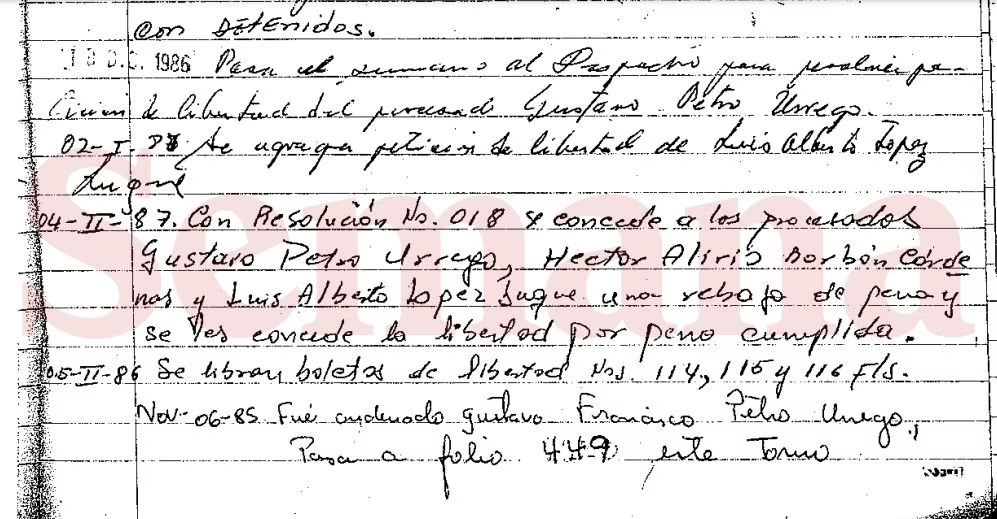 con detenidos.
D.C. 1986 Pasa el sumario al Despacho para resolver pe-
ticion de libertad del procesado Gustavo Petro Urrego.
02-I-87 Se agrega peticion de libertad de Luis Alberto Lopez
Luque
04-II-87. Con Resolución No. 018 se concede a los procesados
Gustavo Petro Urrego, Hector Alirio Borbón Cárde
nas y Luis Alberto Lopez Luque una rebaja de pena y
se les concede la libertad por pena cumplida.
05-II-86 Se libran boletas de libertad Nos. 114, 115 y 116 F/s.
Nov-06-85 Fué condenado Gustavo Francisco Petro Urrego,
Pasa a folio 449 este Tomo
Semana